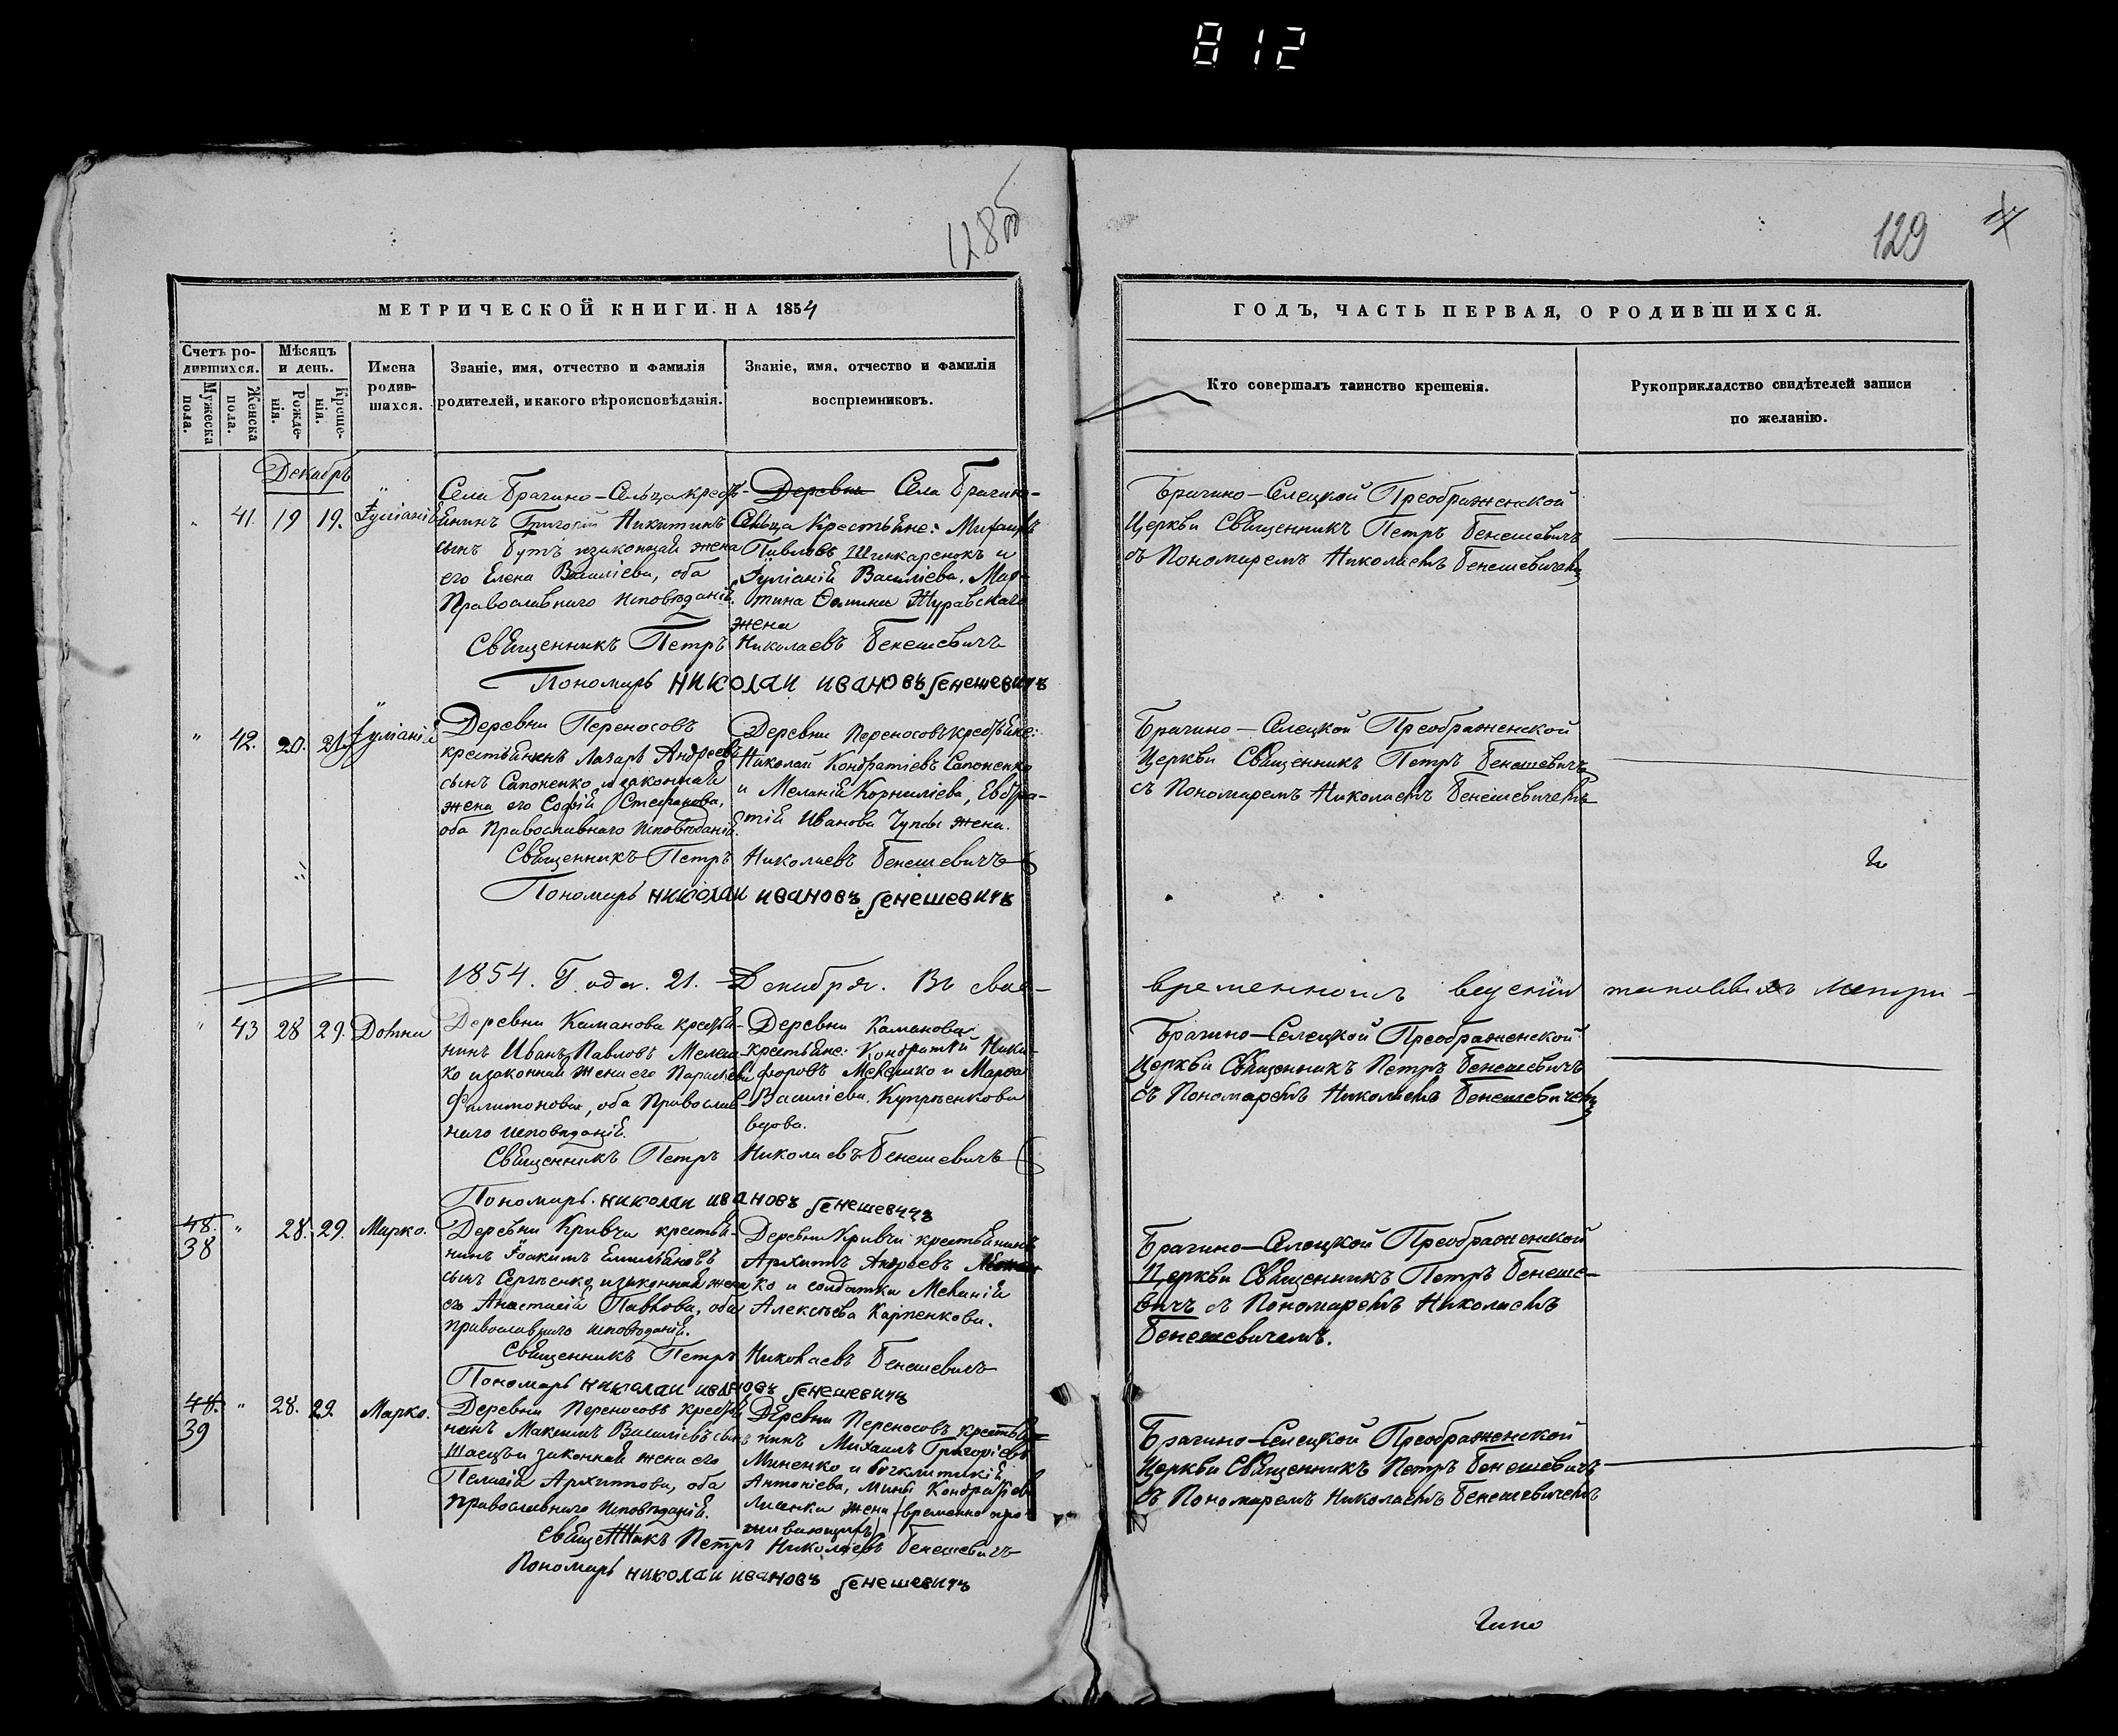 812
128об
129
17
МЕТРИЧЕСКОЙ КНИГИ НА 1854
ГОДЪ, ЧАСТЬ ПЕРВАЯ, О РОДИВШИХСЯ.
Счетъ ро-
дившихся.
Мужеска
пола.
Женска
пола.
Мѣсяцъ
и день.
Рожде-
нія.
Креще-
нія.
Имена
родив-
шихся.
Званіе, имя, отчество и фамилія
родителей, и какого вѣроисповѣданія.
Званіе, имя, отчество и фамилія
воспріемниковъ.
Кто совершалъ таинство крещенія.
Рукоприкладство свидѣтелей записи
по желанію.
Декабръ
" 41. 19 19. Іуліанія
Села Брагино-Сельца кресть-
янинъ Григорій Никитинъ
сынъ Бутъ и законная жена
его Елена Василіева, оба
Православнаго Исповѣданія.
Деревни Села Брагино-
Сельца Крестьяне: Михаилъ
Павловъ Шинкаренокъ и
Іуліанія Василіева, Мар-
тина Ѳомина Журавскаго
жена
Брагино-Селецкой Преображенской
Церкви Священникъ Петръ Бенешевичъ
съ Пономаремъ Николаемъ Бенешевичемъ
Священникъ Петръ Николаевъ Бенешевичъ
Пономаръ николаи ивановъ бенешевичъ
" 42. 20. 21. Іуліанія
Деревни Переносовъ
крестьянинъ Лазаръ Андреевъ
сынъ Сапоненко и законная
жена его Софія Стефанова,
оба Православнаго Исповѣданія.
Деревни Переносовъ крестьяне:
Николай Кондратіевъ Сапоненко
и Меланія Корниліева, Евстра-
тія Иванова жена.
Брагино-Селецкой Преображенской
Церкви Священникъ Петръ Бенешевичъ
съ Пономаремъ Николаемъ Бенешевичемъ
Священникъ Петръ Николаевъ Бенешевичъ
Пономаръ николаи ивановъ бенешевичъ
1854. Года. 21. Декабря. Въ свое-
временномъ веденіи таковыхъ метри-
" 43 28 29. Домна
Деревни Каманова крестья-
нинъ Иванъ Павловъ Мелеш-
ко и законная жена его Параскева
Филимонова, оба Православ-
наго исповѣданія.
Деревни Каманова
крестьяне: Кондратій Ники-
форовъ Мелешко и Марѳа
Василіева Купрѣенкова
вдова.
Брагино-Селецкой Преображенской
Церкви Священникъ Петръ Бенешевичъ
съ Пономаремъ Николаемъ Бенешевичемъ
Священникъ Петръ Николаевъ Бенешевичъ
Пономаръ николаи ивановъ бенешевичъ
48. 38 " 28. 29. Марко.
Деревни Кривчи крестья-
нинъ Іоакимъ Емильяновъ
сынъ Сергѣенко и законная жена
его Анастасія Павлова, оба
православнаго исповѣданія.
Деревни Кривчи крестьянинъ
Архипъ Андреевъ
ко и солдатка Меланія
Алексѣева Карпенкова.
Брагино-Селецкой Преображенской
Церкви Священникъ Петръ Бенеше-
вичъ съ Пономаремъ Николаемъ
Бенешевичемъ.
Священникъ Петръ Николаевъ Бенешевичъ
Пономаръ николаи ивановъ бенешевичъ
48. 39 " 28. 29. Марко.
Деревни Переносовъ крестья
нинъ Максимъ Василіевъ сынъ
и законная жена его
Пелагія Архипова, оба
православнаго исповѣданія.
Деревни Переносовъ крестья-
нинъ Михаилъ Григоріевъ
Миненко и
Антоніева, Мины Кондратіева
Лисенка жена (временно про-
живающихъ)
Брагино-Селецкой Преображенской
Церкви Священникъ Петръ Бенешевичъ
съ Пономаремъ Николаемъ Бенешевичемъ
Священникъ Петръ Николаевъ Бенешевичъ
Пономаръ николаи ивановъ бенешевичъ